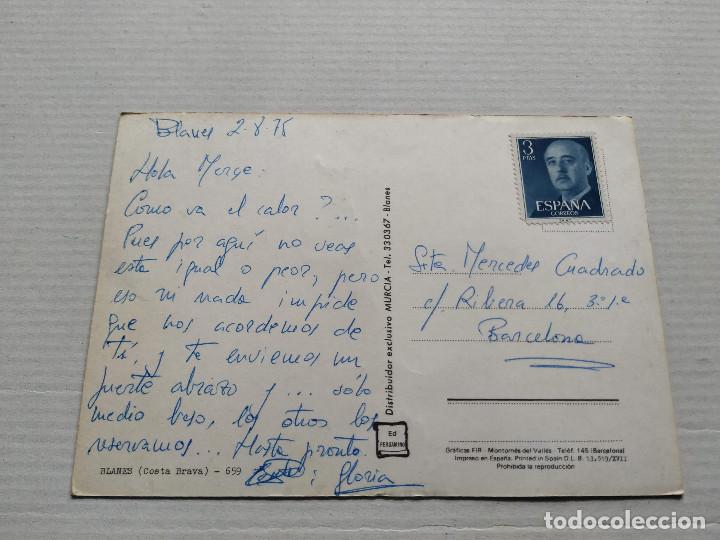 Blanes 2-8-75
Hola Merçe:
Como va el calor?...
Pues por aquí no veas
esta igual o peor, pero
eso ni nada impide
que nos acordemos de
tí, y te enviemos un
fuerte abrazo y... sólo
medio beso, los otros los
reservamos... Hasta pronto.
: Gloria
BLANES (Costa Brava) - 659
Distribuidor exclusivo MURCIA - Tel. 330367 - Blanes
Ed
PERGAMINO
3
PTAS
ESPAÑA
CORREOS
Sta. Mercedes Cuadrado
c/ Ribera 16, 3º 1ª
Barcelona
Gráficas FIR - Montornés del Vallés - Teléf. 145 (Barcelona)
Impreso en España. Printed in Spain D.L. B. 13.519/XVII
Prohibida la reproducción
todocoleccion.net